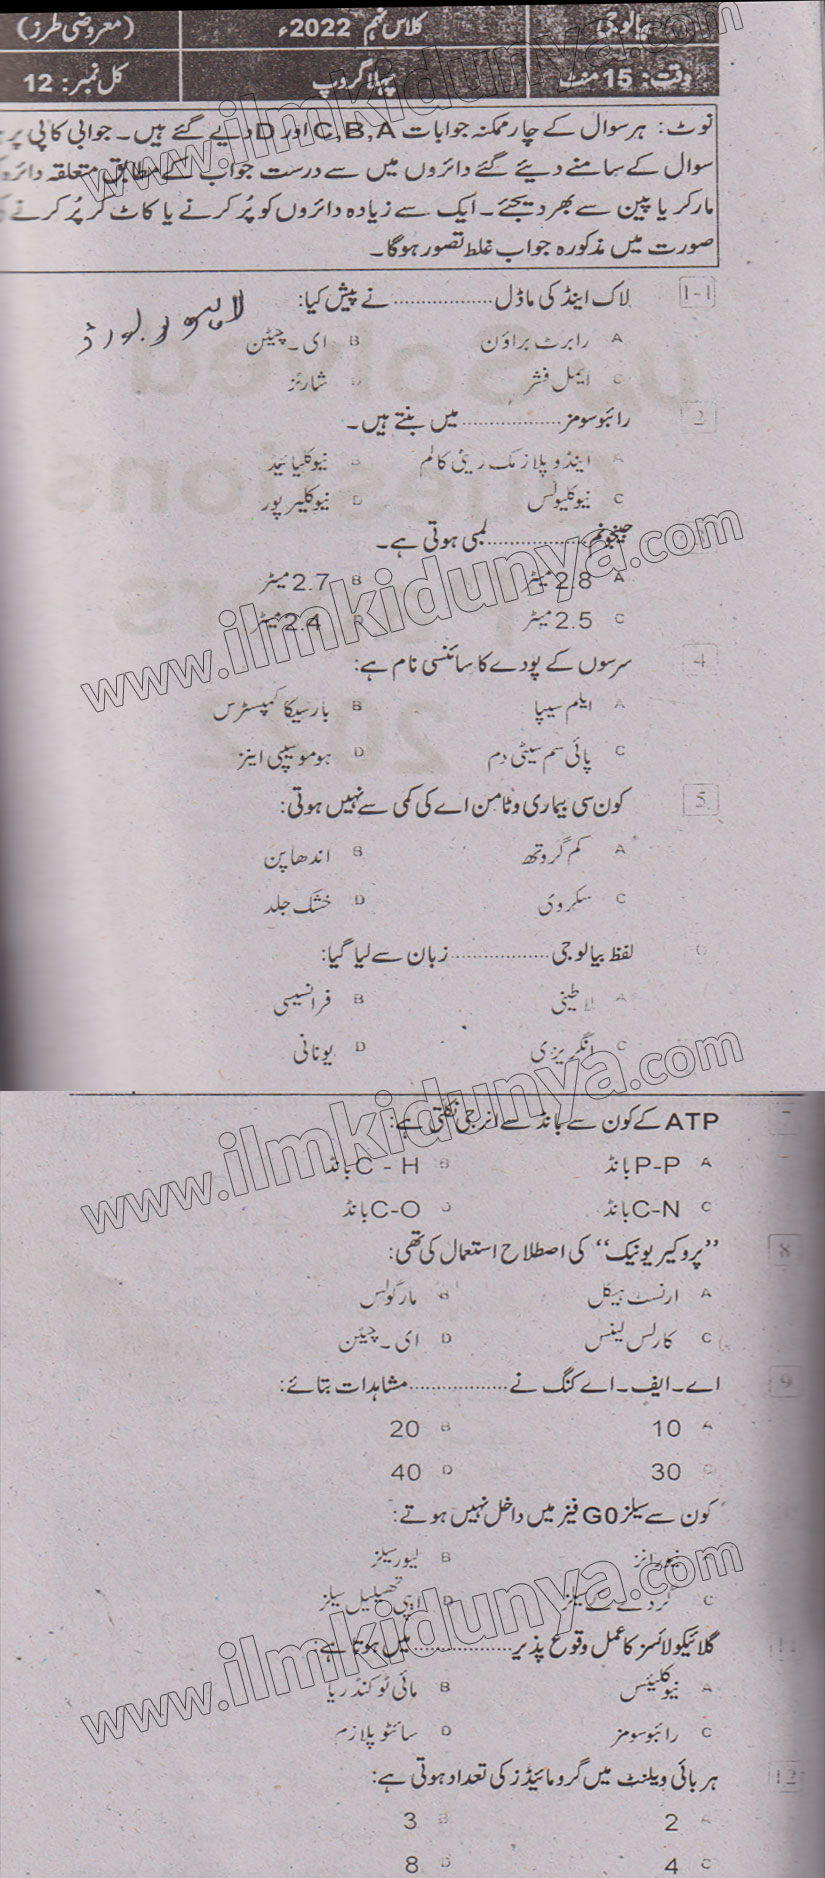 بیالوجی کلاس نہم 2022ء (معروضی طرز)
وقت: 15 منٹ پہلا گروپ کل نمبر: 12
نوٹ: ہر سوال کے چار ممکنہ جوابات C,B,A اور D دیے گئے ہیں۔ جوابی کاپی پر
سوال کے سامنے دیئے گئے دائروں میں سے درست جواب کے مطابق متعلقہ دائرہ
مارکر یا پین سے بھر دیجئے۔ ایک سے زیادہ دائروں کو پُر کرنے یا کاٹ کر پُر کرنے کی
صورت میں مذکورہ جواب غلط تصور ہوگا۔
1-1 لاک اینڈ کی ماڈل .................. نے پیش کیا:
لاہور بورڈ
A رابرٹ براؤن B ای۔ چیٹن
C ایمل فشر D شارئز
2 رائبوسومز .................. میں بنتے ہیں۔
A اینڈوپلازمک ریٹی کالم B نیوکلیائیڈ
C نیوکلیولس D نیوکلیر پور
جیجونم .................. لمبی ہوتی ہے۔
A 2.8 میٹر B 2.7 میٹر
C 2.5 میٹر D 2.4 میٹر
4 سرسوں کے پودے کا سائنسی نام ہے:
A ایلیم سیپا B بارسیکا کمپسٹرس
C پائی سم سیٹی وم D ہومو سیپی اینز
5 کون سی بیماری وٹامن اے کی کمی سے نہیں ہوتی:
A کم گروتھ B اندھا پن
C سکروی D خشک جلد
6 لفظ بیالوجی .................. زبان سے لیا گیا:
A لاطینی B فرانسیسی
C انگریزی D یونانی
7 ATP کے کون سے بانڈ سے انرجی نکلتی ہے:
A P-P بانڈ B C - H بانڈ
C C-N بانڈ D C-O بانڈ
8 ”پروکیریونیک“ کی اصطلاح استعمال کی تھی:
A ارنسٹ ہیکل B مارگولس
C کارلس لینئس D ای۔ چیٹن
9 اے۔ ایف۔ اے کنگ نے .................. مشاہدات بتائے:
A 10 B 20
C 30 D 40
کون سے سیلز G0 فیز میں داخل نہیں ہوتے:
A نیورانز B لیور سیلز
C گردے کے سیلز D اپی تھیلیل سیلز
11 گلائیکولائسز کا عمل وقوع پذیر .................. میں ہوتا ہے:
A نیوکلیئس B مائی ٹو کنڈریا
C رائبوسومز D سائٹوپلازم
12 ہر بائی ویلنٹ میں گرومائیڈز کی تعداد ہوتی ہے:
A 2 B 3
C 4 D 8
www.ilmkidunya.com
www.ilmkidunya.com
www.ilmkidunya.com
www.ilmkidunya.com